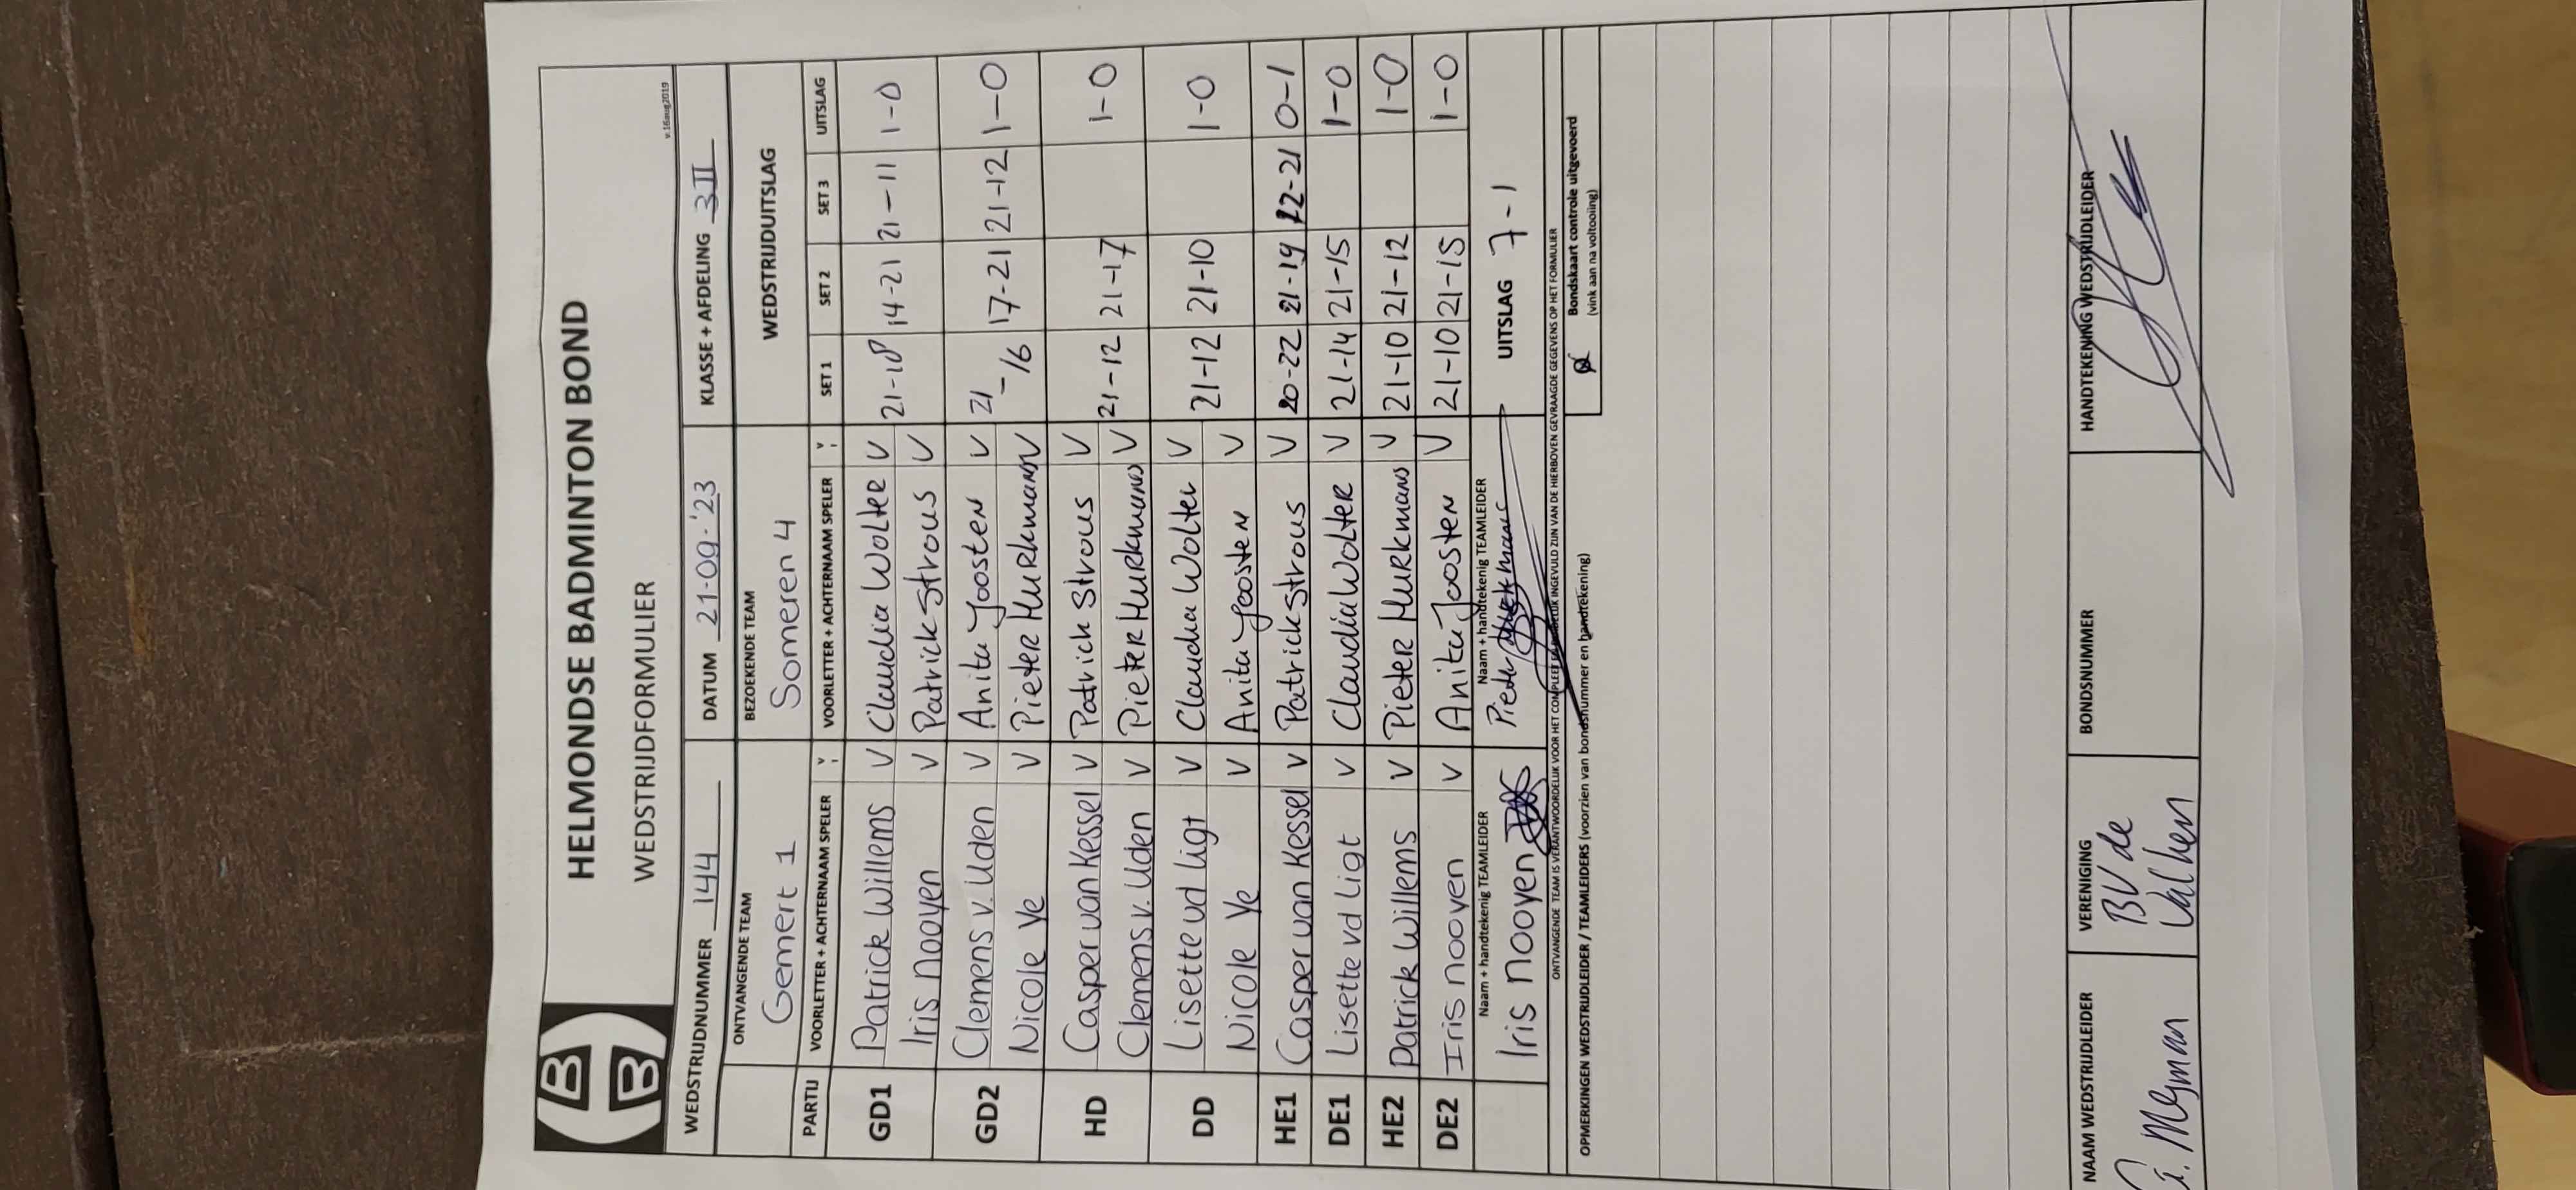 HELMONDSE BADMINTON BOND
WEDSTRIJDFORMULIER
v.16aug2019
WEDSTRIJDNUMMER 144 DATUM 21-09-'23 KLASSE + AFDELING 3II
ONTVANGENDE TEAM BEZOEKENDE TEAM WEDSTRIJDUITSLAG
Gemert 1 Someren 4
PARTIJ VOORLETTER + ACHTERNAAM SPELER V VOORLETTER + ACHTERNAAM SPELER V SET 1 SET 2 SET 3 UITSLAG
GD1 Patrick Willems V Claudia Wolter V 21-18 14-21 21-11 1-0
Iris Nooyen V Patrick Strous V
GD2 Clemens v. Uden V Anita Joosten V 21-16 17-21 21-12 1-0
Nicole Ye V Pieter Hurkmans V
HD Casper van Kessel V Patrick Strous V 21-12 21-17 1-0
Clemens v. Uden V Pieter Hurkmans V
DD Lisette vd Ligt V Claudia Wolter V 21-12 21-10 1-0
Nicole Ye V Anita Joosten V
HE1 Casper van Kessel V Patrick Strous V 20-22 21-19 -21 0-1
DE1 Lisette vd Ligt V Claudia Wolter V 21-14 21-15 1-0
HE2 Patrick Willems V Pieter Hurkmans V 21-10 21-12 1-0
DE2 Iris nooyen V Anita Joosten V 21-10 21-15 1-0
Naam + handtekenig TEAMLEIDER Naam + handtekenig TEAMLEIDER
Iris Nooyen Pieter Hurkmans UITSLAG 7-1
ONTVANGENDE TEAM IS VERANTWOORDELIJK VOOR HET COMPLEET EN INGEVULD ZIJN VAN DE HIERBOVEN GEVRAAGDE GEGEVENS OP HET FORMULIER
OPMERKINGEN WEDSTRIJDLEIDER / TEAMLEIDERS (voorzien van bondsnummer en handtekening)
Bondskaart controle uitgevoerd
(vink aan na voltooiing)
NAAM WEDSTRIJDLEIDER VERENIGING BONDSNUMMER HANDTEKENING WEDSTRIJDLEIDER
BV de